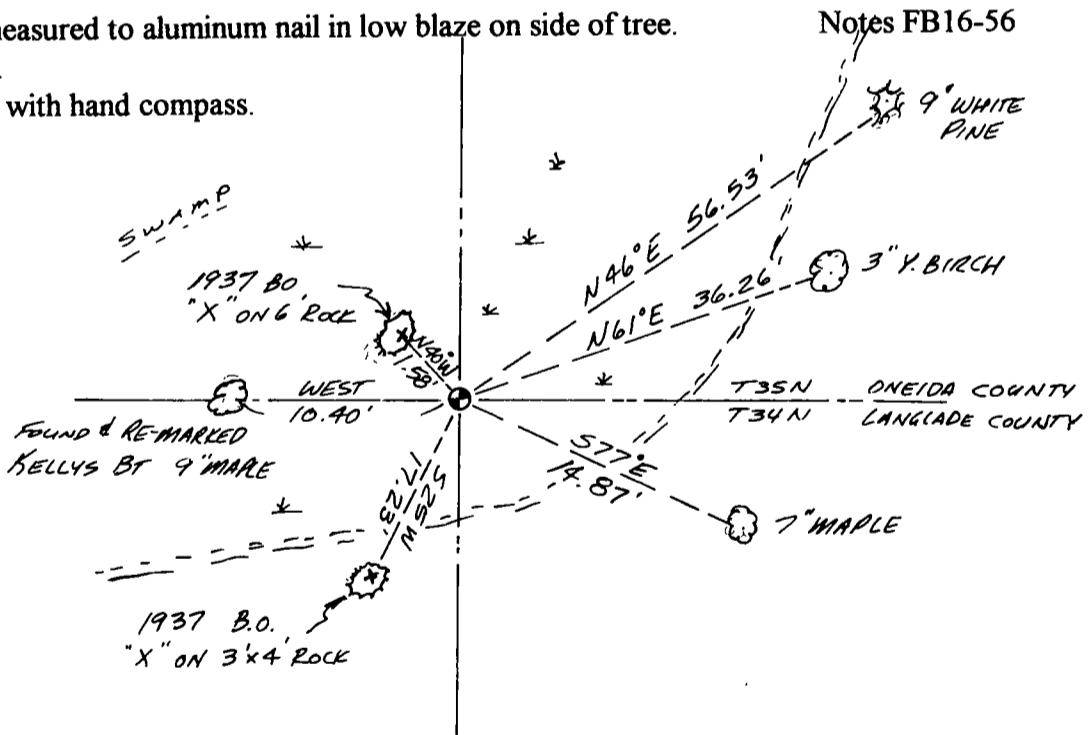 measured to aluminum nail in low blaze on side of tree.
Notes FB16-56
with hand compass.
9" WHITE
PINE
SWAMP
N46°E 56.53'
3" Y. BIRCH
1937 BO
"X" ON 6' ROCK
N61°E 36.26'
N40W
WEST
10.40'
T35N ONEIDA COUNTY
T34N LANGLADE COUNTY
FOUND & RE-MARKED
KELLYS BT 9" MAPLE
S77°E
14.87'
S25W
17.23'
7" MAPLE
1937 B.O.
"X" ON 3'x4' ROCK